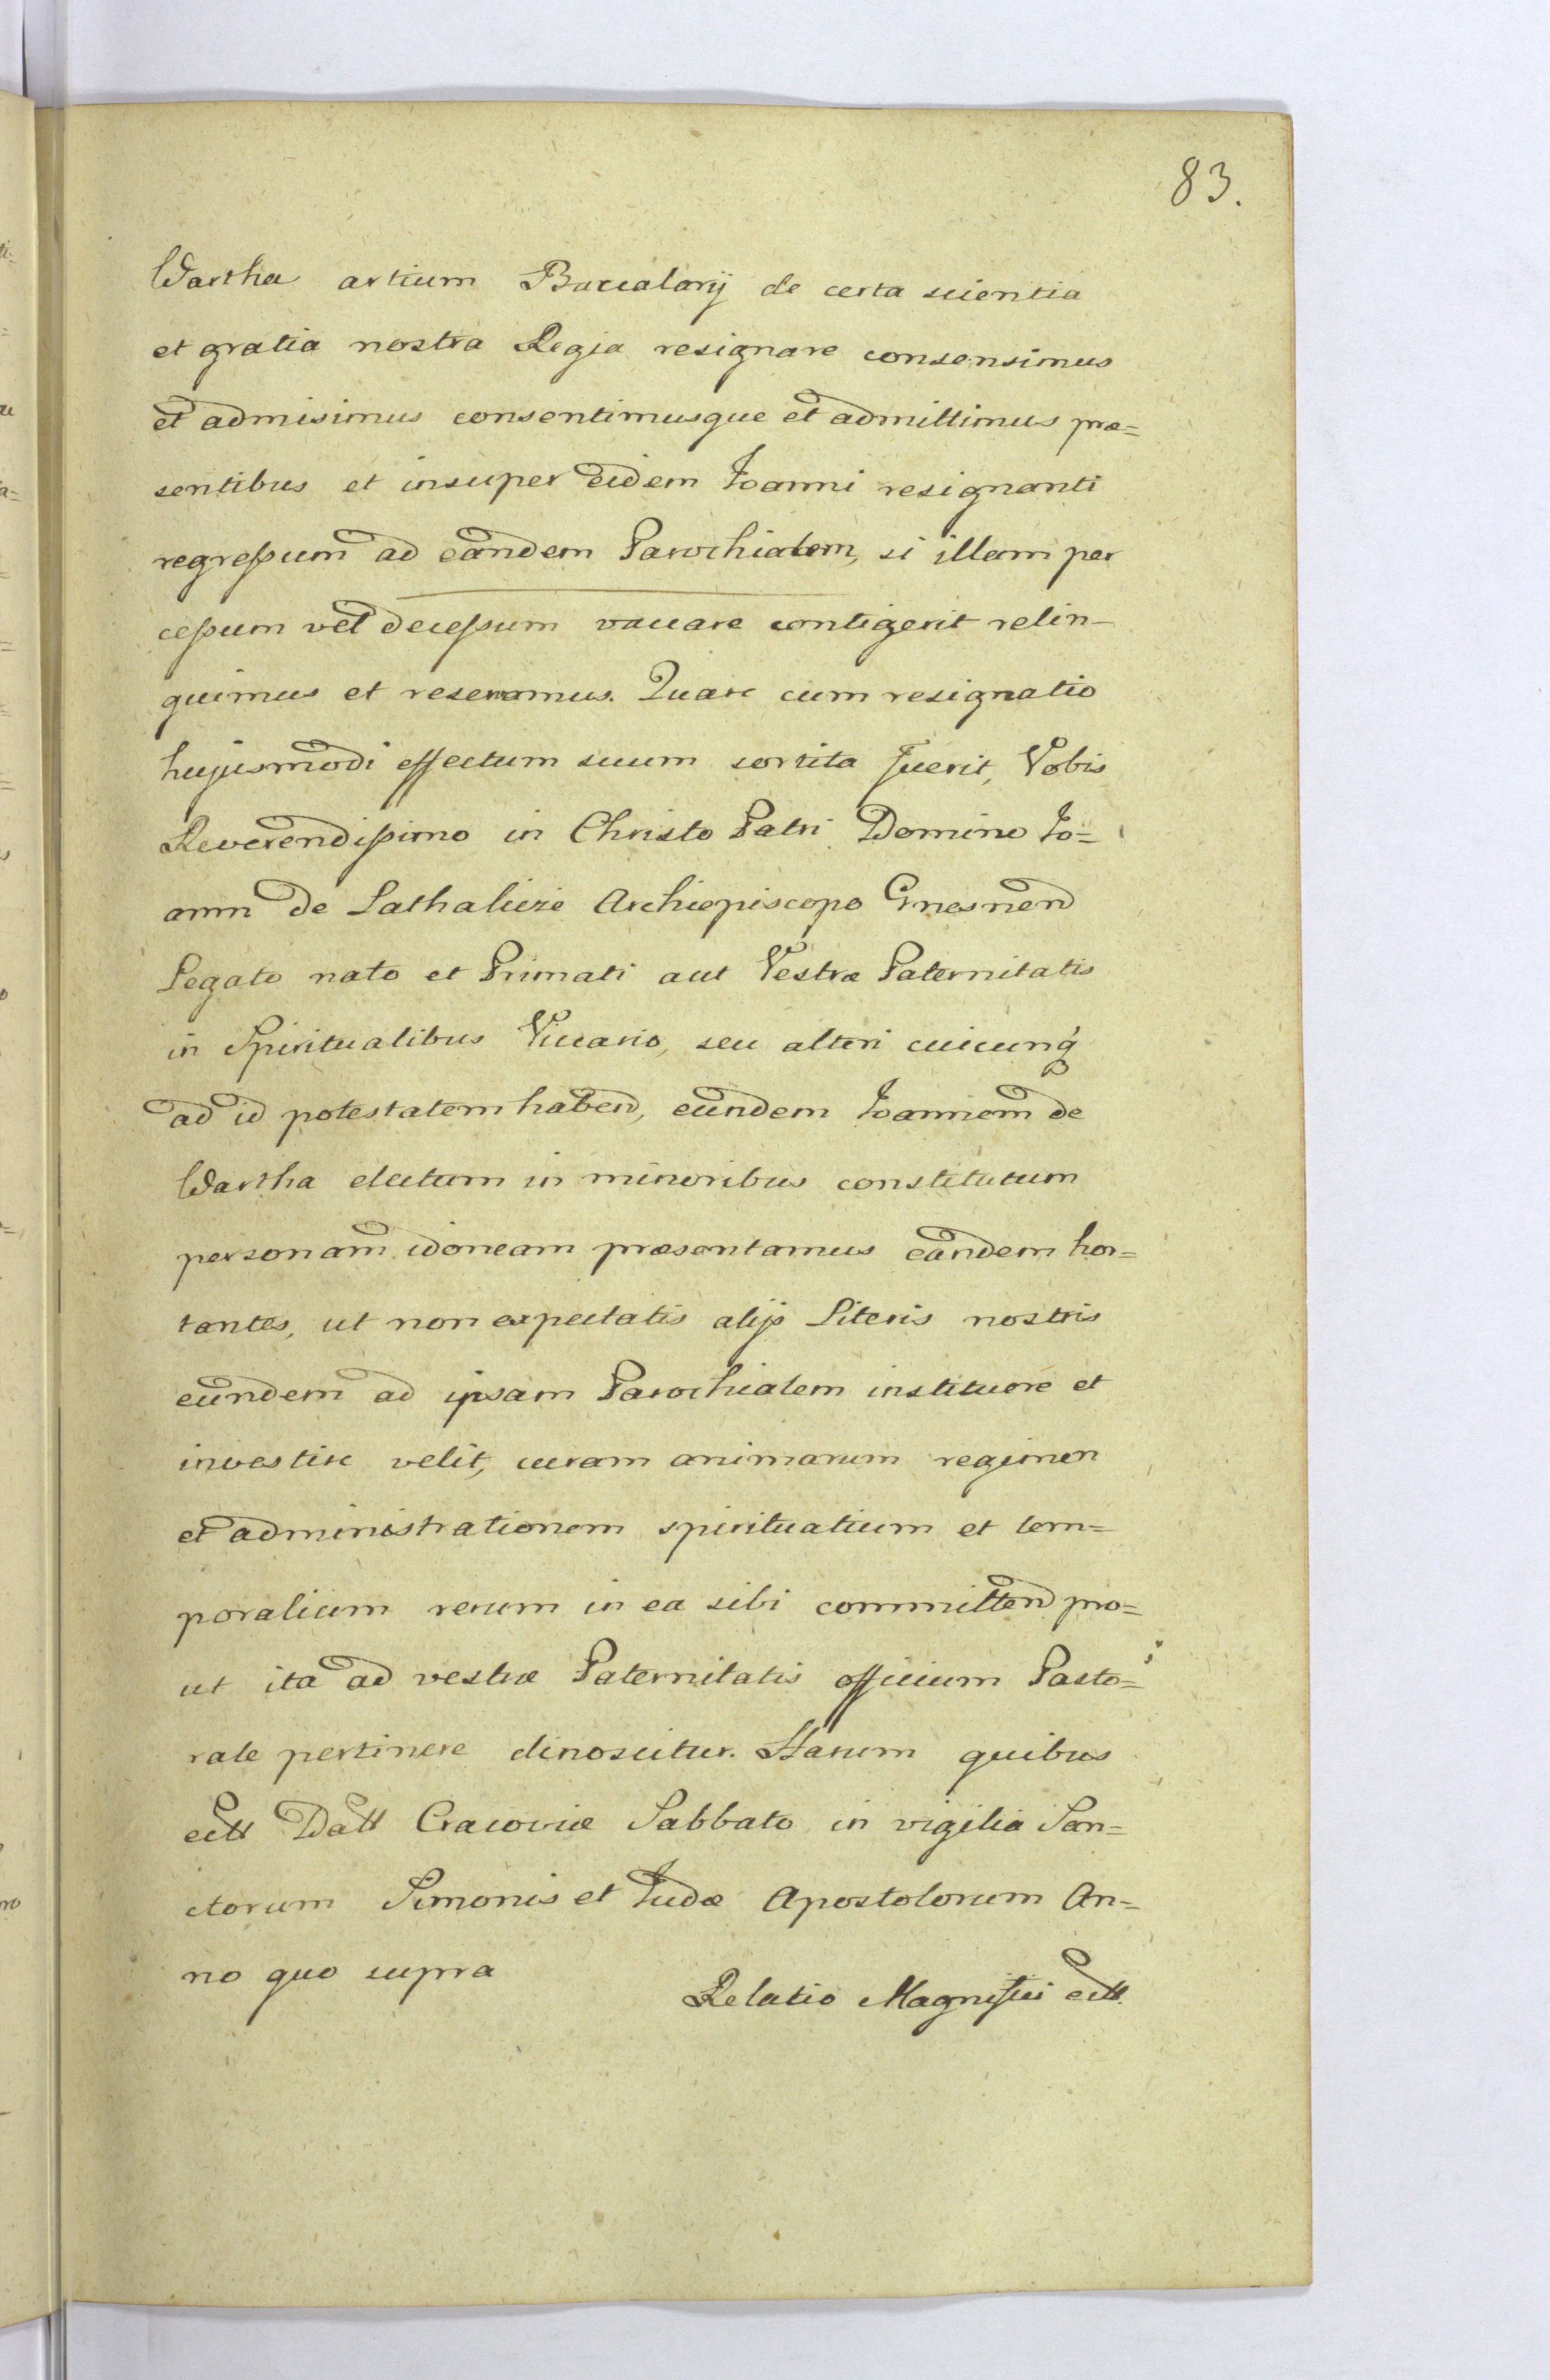 83.
Wartha artium Baccalarij de certa scientia
et gratia nostra Regia resignare consensimus
et admisimus consentimusque et admittimus præ=
sentibus et insuper eidem Joanni resignanti
regreſsum ad eandem Parochialem, si illam per
ceſsum vel deceſsum vacare contigerit relin-
quimus et reservamus. Quare cum resignatio
hujusmodi effectum suum sortita fuerit, Vobis
Reverendiſsimo in Christo Patri Domino Jo=
ann de Lathalicze Archiepiscopo Gnesnen
Legato nato et Primati aut Vestræ Paternitatis
in Spiritualibus Vicario, seu alteri cuicunq
ad id potestatem haben, eundem Joannem de
Wartha electum in minoribus constitutum
personam idoneam præsentamus eandem hor=
tantes, ut non expectatis alijs Literis nostris
eundem ad ipsam Parochialem instituere et
investire velit, curam animarum regimen
et administrationem spiritualium et tem=
poralium rerum in ea sibi committen pro=
ut ita ad vestræ Paternitatis officium Pasto=
rale pertinere dinoscitur. Harum quibus
ectt Datt Cracoviæ Sabbato in vigilia San=
ctorum Simonis et Judæ Apostolorum An=
no quo supra
Relatio Magnifici ectt.